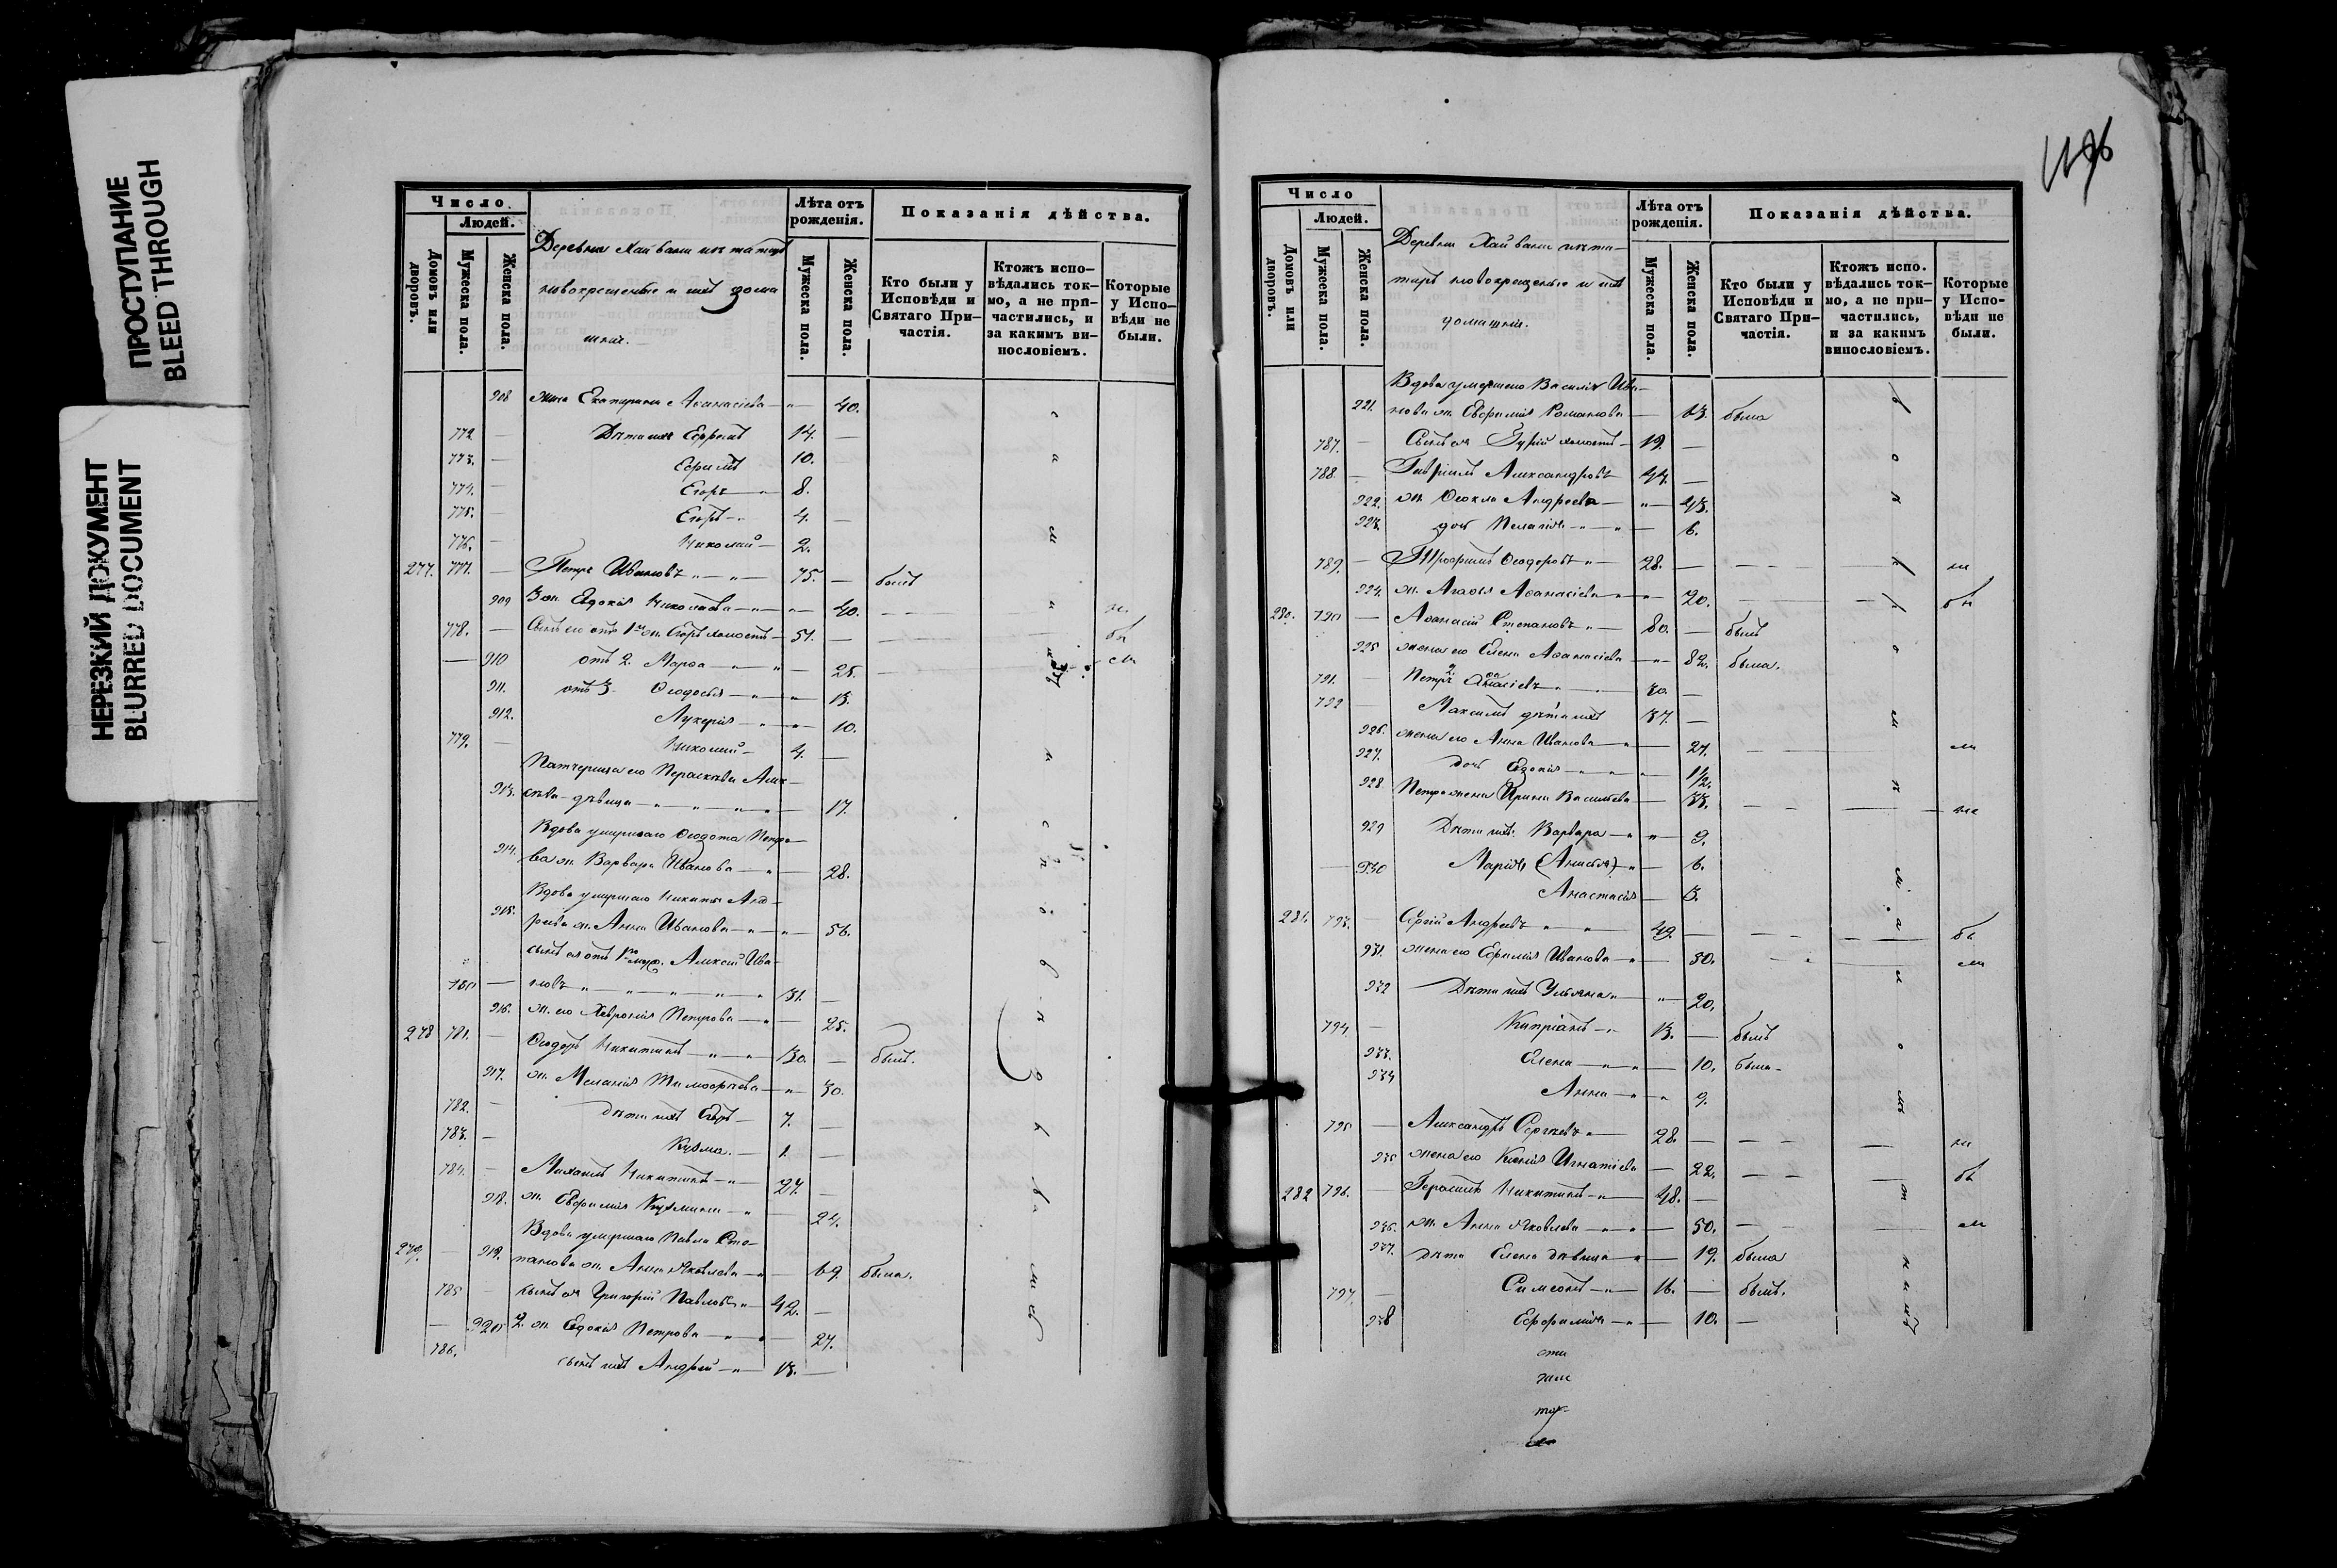 ПРОСТУПАНИЕ
BLEED THROUGH
НЕРЕЗКИЙ ДОКУМЕНТ
BLURRED DOCUMENT
Число.
Людей.
Домовъ или дворовъ.
Мужеска пола.
Женска пола.
Деревни
новокрещеные и ихъ дома
шніе.
Лѣта отъ рожденія.
Мужеска пола.
Женска пола.
Показанія дѣйства.
Кто были у Исповѣди и Святаго Причастія.
Ктожъ исповѣдались токмо, а не причастились, и за какимъ винословіемъ.
Которые у Исповѣди не были.
908 жена Екатерина Аѳанасіева 40.
772. Дѣти ихъ Ефремъ 14.
773. Ефимъ 10.
774. Егоръ 8.
775. Егоръ 4.
776. Николай 2.
277. 777. Петръ Ивановъ 75. былъ
909 3 ж. Евдокія Николаева 40.
778. Сынъ его отъ 1й ж. Егоръ холостъ 51.
910 отъ 2. Марѳа 25.
911. отъ 3. Ѳеодосья 13.
912. Лукерія 10.
779. Николай 4.
Патчерица его Параскева Алек-
913. сѣева дѣвица 17.
Вдова умершаго Ѳедота Петро-
914. ва ж. Варвара Иванова 28.
Вдова умершаго Никиты Анд-
915. реева ж. Анна Иванова 56.
сынъ ея отъ 1го муж. Алексей Ива-
780 новъ 31.
916. ж. его Хевронія Петрова 25.
278 781. Ѳедоръ Никитинъ 30. былъ.
917. ж. Меланія Тимофѣева 30.
782. дѣти ихъ Егоръ 7.
783. Кузма 1.
784. Михаилъ Никитинъ 27.
918. ж. Евфимія Кузмина 24.
Вдова умершаго Павла Сте-
279. 919. панова ж. Анна Яковлева 69. была.
785 сынъ ея Григорій Павловъ 42.
920 2. ж. Евдокія Петрова 27.
786. сынъ ихъ Андрей 13.
Число
Людей.
Домовъ или дворовъ.
Мужеска пола.
Женска пола.
Деревни
новокрещеные и ихъ
домашніе.
Лѣта отъ рожденія.
Мужеска пола.
Женска пола.
Показанія дѣйства.
Кто были у Исповѣди и Святаго Причастія.
Ктожъ исповѣдались токмо, а не причастились, и за какимъ винословіемъ.
Которые у Исповѣди не были.
Вдова умершаго Василія Ива-
921. нова ж. Евфимія Романова 63. была
787. Сынъ ея Гурій холостъ 19.
788. Гавріилъ Александровъ 44.
922. ж. Ѳекла Андреева 43.
923. дочь Пелагія 6.
789. Трофимъ Ѳеодоровъ 28. не
924. ж. Агаѳія Аѳанасіева 20.
280. 790 Аѳанасій Степановъ 80. былъ
925 жена его Елена Аѳанасіева 82. была.
791. Петръ 30.
792 Максимъ дѣти ихъ 37.
926. жена его Анна Иванова 27.
927. дочь Евдокія 1½.
928. Петра жена Ирина Васильева 33.
929 Дѣти ихъ: Варвара 9.
930 Марія (Анисья) 6.
Анастасія 3.
281. 793. Сергій Андреевъ 49.
931. жена его Ефимія Иванова 50.
932 Дѣти ихъ Ульяна 20.
794 Кипріанъ 13. былъ
933. Елена 10. была
934 Анна 9.
795 Александръ Сергѣевъ 28.
935 жена его Ксенія Игнатіева 22.
282 796. Герасимъ Никитинъ 48.
936. ж. Анна Яковлева 50.
937. дѣти Елена дѣвица 19. была
797. Симеонъ 16. былъ.
938 Ефимія 10.